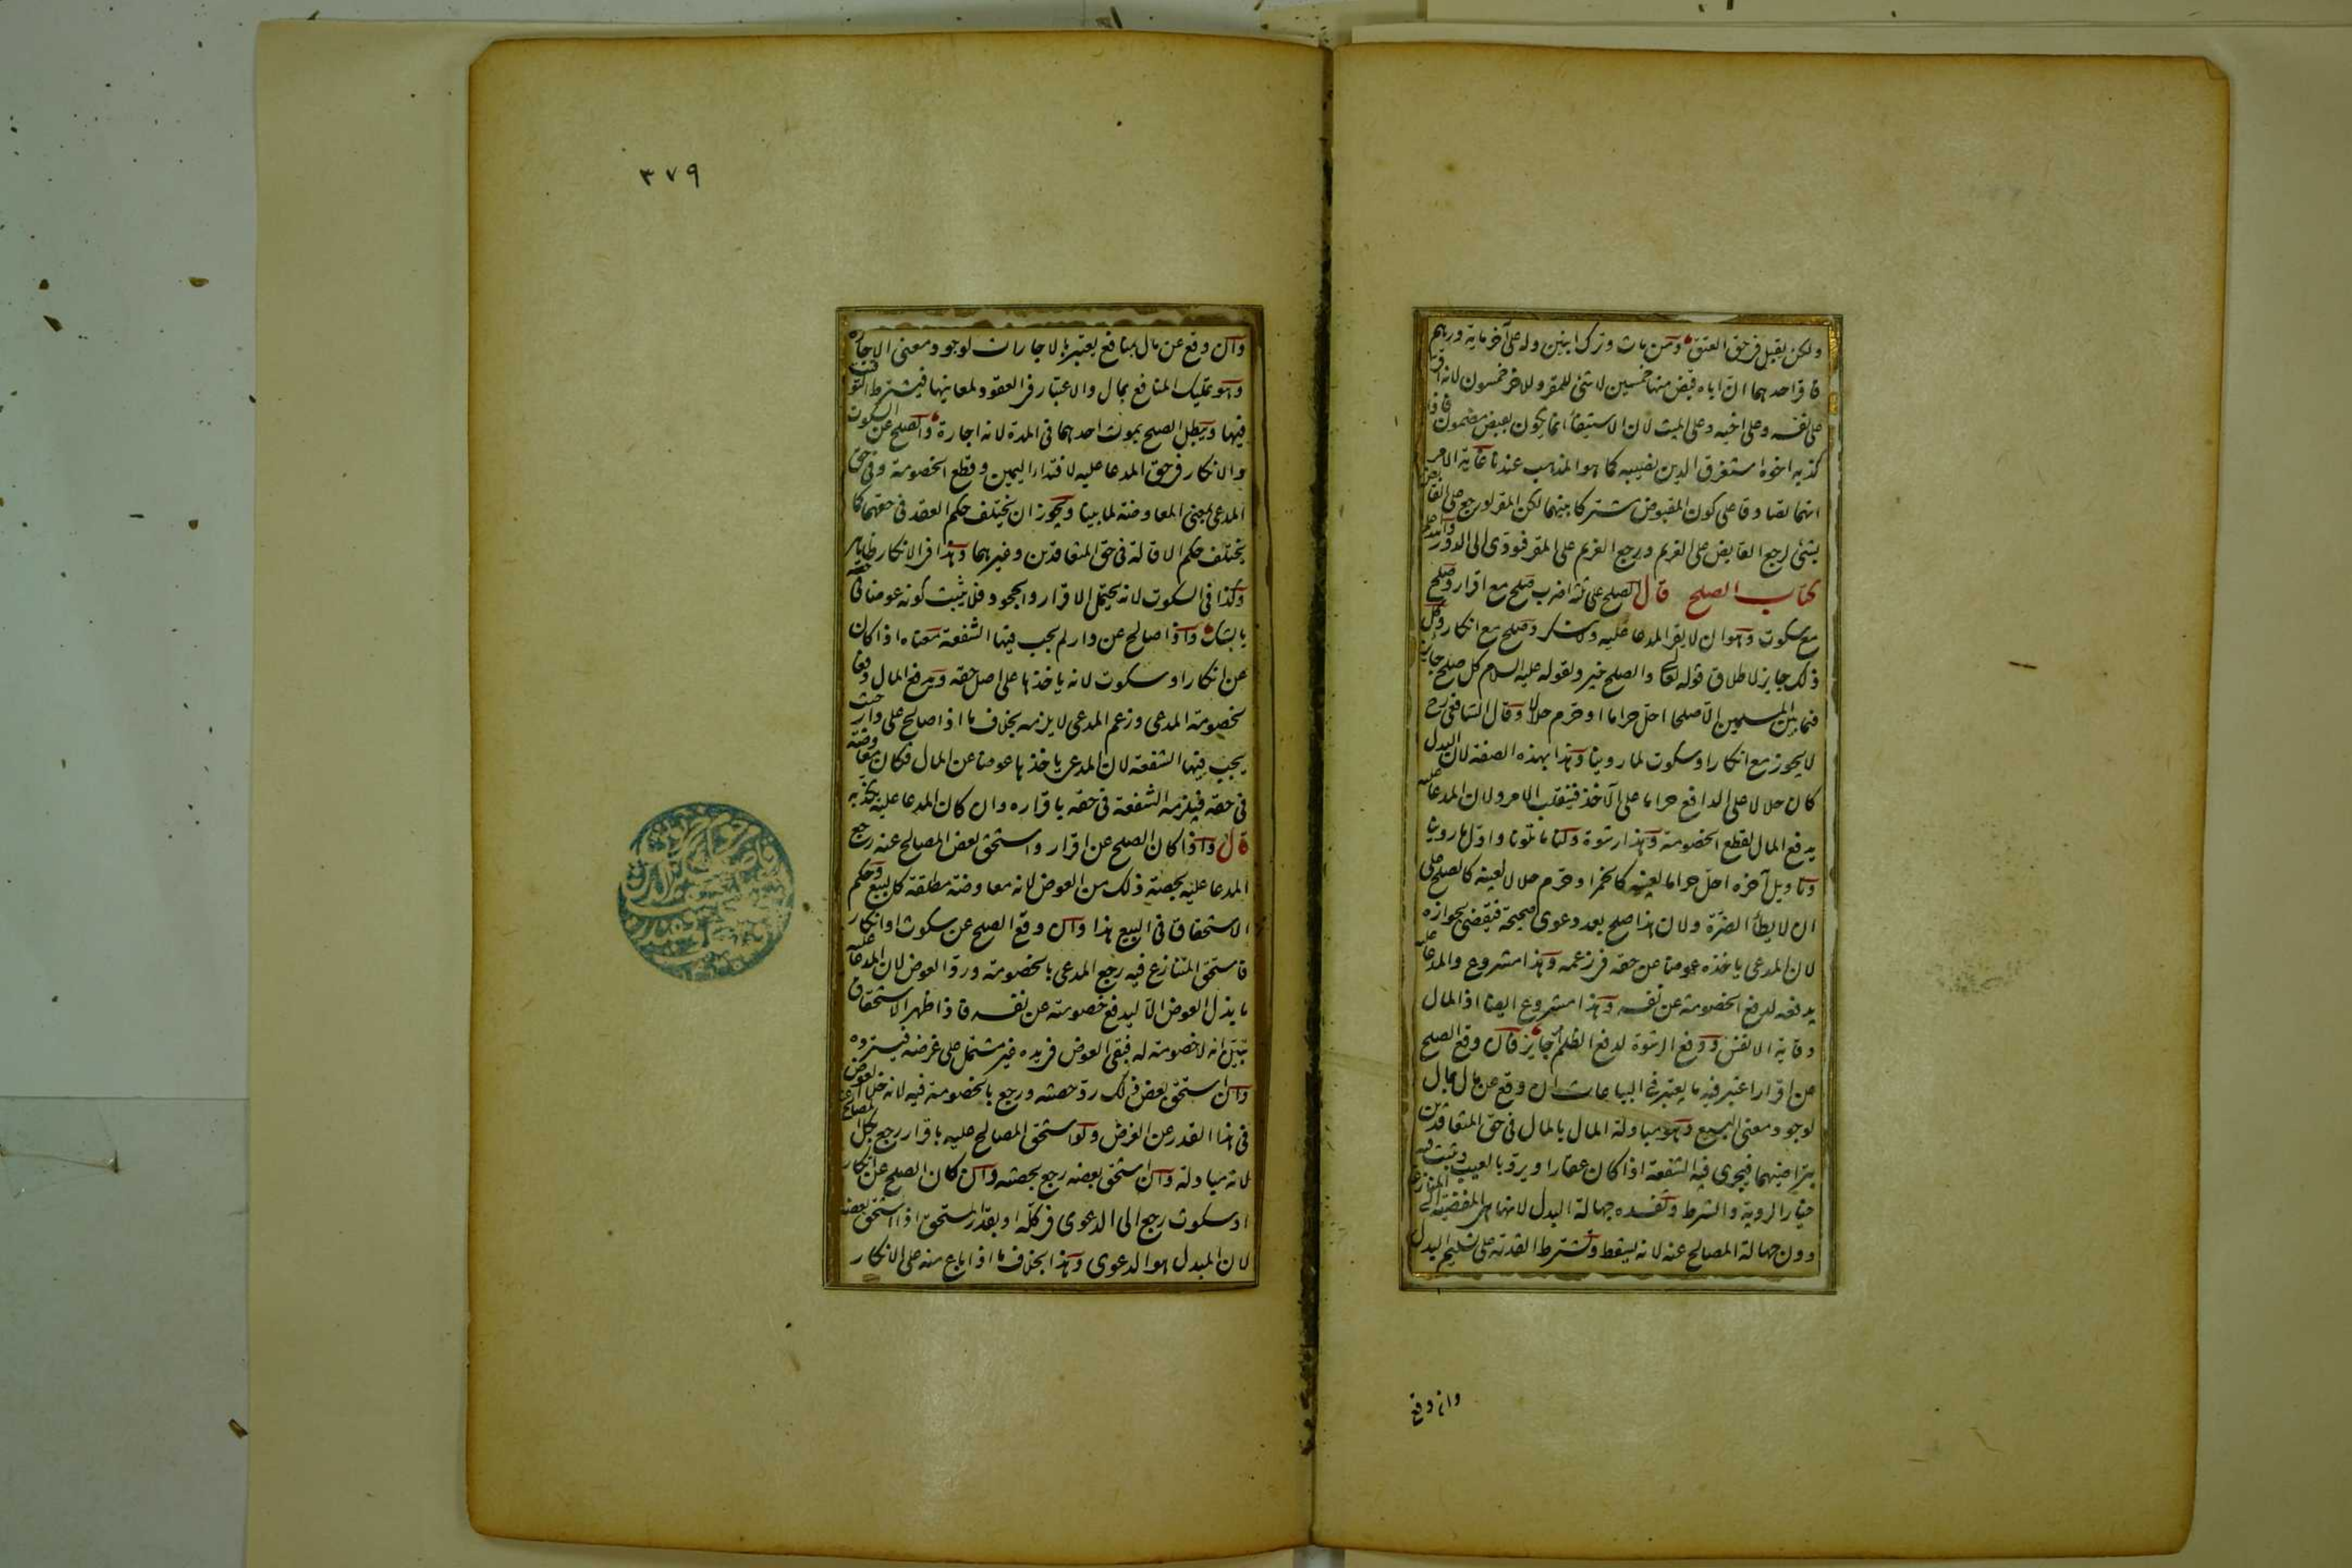 ولكن يقبل فى حق العتق ومن مات وترك ابنين وله على آخر ماية درهم
فاقر احدهما ان اباه قبض منها خمسين لا شئ للمقر وللاخر خمسون لانه اقرار
على نفسه وعلى اخيه وعلى الميت لان الاستيفاء انما يكون بقبض مضمون فاذا
كذبه اخوه استغرق الدين نصيبه كما هو المذهب عندنا غاية الامر
انهما تصادقا على كون المقبوض مشتركا بينهما لكن المقر لو رجع على القابض
بشئ لرجع القابض على الغريم ورجع الغريم على المقر فيؤدى الى الدور والله اعلم
كتاب الصلح قال الصلح على ثلثة اضرب صلح مع اقرار وصلح
مع سكوت وهو ان لا يقر المدعا عليه ولا ينكر وصلح مع انكار وكل
ذلك جايز لاطلاق قوله تعالى والصلح خير ولقوله عليه السلام كل صلح جايز
فيما بين المسلمين الا صلحا احل حراما او حرم حلالا وقال الشافعى رح
لا يجوز مع انكار او سكوت لما روينا وهذا بهذه الصفة لان البدل
كان حلالا على الدافع حراما على الآخذ فينقلب الامر ولان المدعا عليه
يدفع المال لقطع الخصومة وهذا رشوة ولنا ما تلونا واول ما روينا
وتاويل آخره احل حراما لعينه كالخمر او حرم حلالا لعينه كالصلح على
ان لا يطأ الضرة ولان هذا صلح بعد دعوى صحيحة فيقضى بجوازه
لان المدعى ياخذه عوضا عن حقه فى زعمه وهذا مشروع والمدعا عليه
يدفعه لدفع الخصومة عن نفسه وهذا مشروع ايضا اذ المال
وقاية الانفس ودفع الرشوة لدفع الظلم جايز فان وقع الصلح
عن اقرار اعتبر فيه ما يعتبر فى البياعات ان وقع عن مال بمال
لوجود معنى البيع وهو مبادلة المال بالمال فى حق المتعاقدين
بتراضيهما فيجرى فيه الشفعة اذا كان عقارا ويرد بالعيب ويثبت فيه
خيار الروية والشرط وتفسده جهالة البدل لانها هى المفضية الى المنازعة
دون جهالة المصالح عنه لانه يسقط وتشترط القدرة على تسليم البدل
وان وقع
٣٧٩
وان وقع عن مال بمنافع يعتبر بالاجارات لوجود معنى الاجارة
وهو تمليك المنافع بمال والاعتبار فى العقود لمعانيها فيشترط التوقيت
فيها ويبطل الصلح بموت احدهما فى المدة لانه اجارة والصلح عن السكوت
والانكار فى حق المدعا عليه لافتداء اليمين وقطع الخصومة وفى حق
المدعى بمعنى المعاوضة لما بينا ويجوز ان يختلف حكم العقد فى حقهما كما
يختلف حكم الاقالة فى حق المتعاقدين وغيرهما وهذا فى الانكار ظاهر
وكذا فى السكوت لانه يحتمل الاقرار والجحود فلا يثبت كونه عوضا فى حقه
بالشك واذا صالح عن دار لم يجب فيها الشفعة معناه اذا كان
عن انكار او سكوت لانه ياخذها على اصل حقه ويدفع المال دفعا
لخصومة المدعى وزعم المدعى لا يلزمه بخلاف ما اذا صالح على دار حيث
يجب فيها الشفعة لان المدعى ياخذها عوضا عن المال فكان معاوضة
فى حقه فيلزمه الشفعة فى حقه باقراره وان كان المدعا عليه يكذبه
قال واذا كان الصلح عن اقرار واستحق بعض المصالح عنه رجع
المدعا عليه بحصة ذلك من العوض لانه معاوضة مطلقة كالبيع وحكم
الاستحقاق فى البيع هذا وان وقع الصلح عن سكوت او انكار
فاستحق المتنازع فيه رجع المدعى بالخصومة ورد العوض لان المدعا عليه
ما بذل العوض الا ليدفع خصومته عن نفسه فاذا ظهر الاستحقاق
تبين ان لا خصومة له فيبقى العوض فى يده غير مشتمل على غرضه فيسترده
وان استحق بعض ذلك رد حصته ورجع بالخصومة فيه لانه خلا العوض
فى هذا القدر عن الغرض ولو استحق المصالح عليه باقرار رجع بكل المصالح عنه
لانه مبادلة وان استحق بعضه رجع بحصته وان كان الصلح عن انكار
او سكوت رجع الى الدعوى فى كله او بقدر المستحق اذا استحق بعضه
لان المبدل هو الدعوى وهذا بخلاف ما اذا باع منه على الانكار